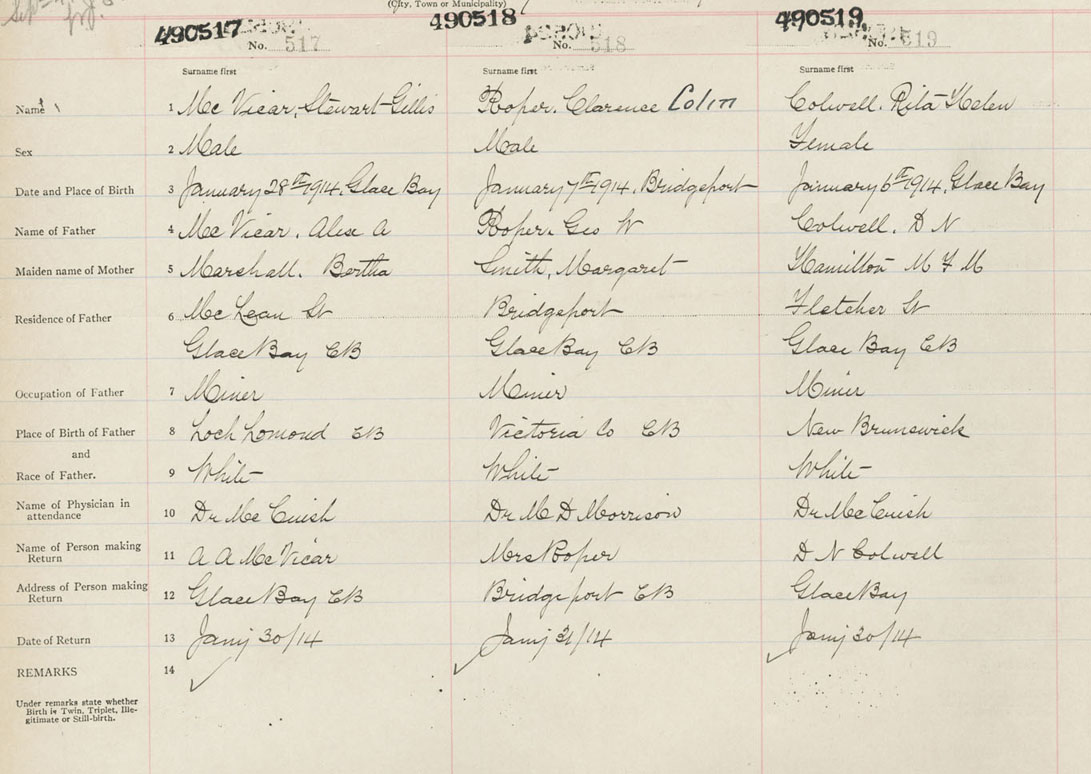 (City, Town or Municipality)
490517
No. 517
490518
No. 518
490519
No. 519
Surname first Surname first Surname first
Name 1 Mc Vicar, Stewart Gillis Roper. Clarence Colin Colwell. Rita Helen
Sex 2 Male Male Female
Date and Place of Birth 3 January 28th 1914. Glace Bay January 7th 1914. Bridgeport January 6th 1914, Glace Bay
Name of Father 4 Mc Vicar. Alex A Roper. Geo W Colwell. D N
Maiden name of Mother 5 Marshall. Bertha Smith, Margaret Hamilton M F M
Residence of Father 6 Mc Lean St Bridgeport Fletcher St
Glace Bay CB Glace Bay CB Glace Bay CB
Occupation of Father 7 Miner Miner Miner
Place of Birth of Father 8 Loch Lomond CB Victoria Co CB New Brunswick
and
Race of Father. 9 White White White
Name of Physician in
attendance 10 Dr Mc Cuish Dr M D Morrison Dr Mc Cuish
Name of Person making
Return 11 A A Mc Vicar Mrs Roper D N Colwell
Address of Person making
Return 12 Glace Bay CB Bridgeport CB Glace Bay
Date of Return 13 Jany 30/14 Jany 31/14 Jany 30/14
REMARKS 14
Under remarks state whether
Birth is Twin, Triplet, Ille-
gitimate or Still-birth.